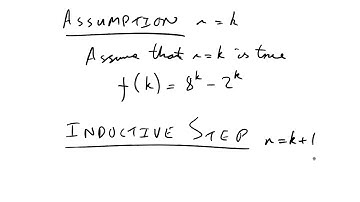 ASSUMPTION n = k
Assume that n=k is true
f(k) = 8^k - 2^k
INDUCTIVE STEP n=k+1